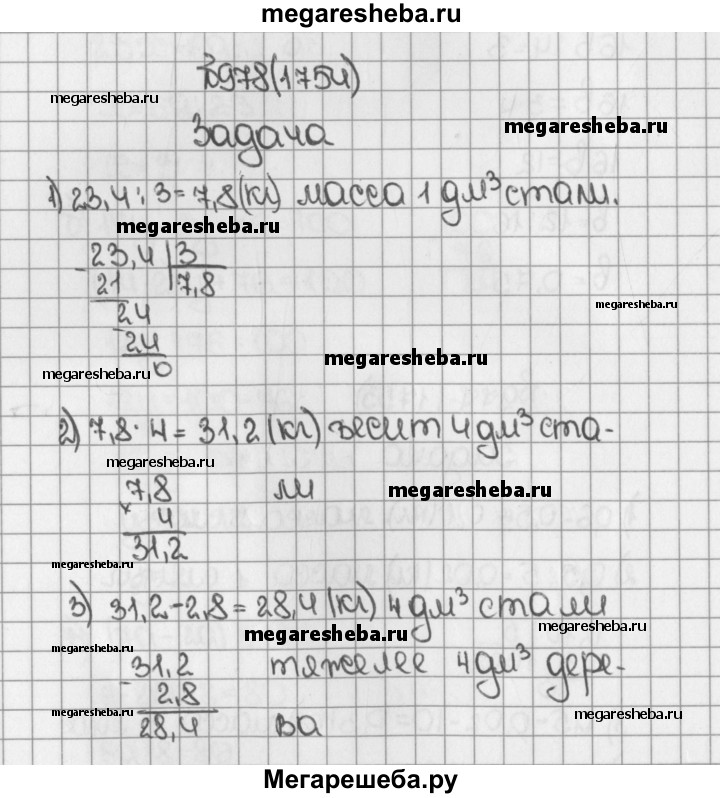 megaresheba.ru
№978(1754)
megaresheba.ru
megaresheba.ru
Задача
1) 23,4 : 3 = 7,8 (кг) масса 1 дм³ стали.
megaresheba.ru
- 23,4 | 3
21 | 7,8
megaresheba.ru
- 24
24
megaresheba.ru
megaresheba.ru
0
2) 7,8 · 4 = 31,2 (кг) весит 4 дм³ ста-
megaresheba.ru
7,8 ли
megaresheba.ru
× 4
31,2
megaresheba.ru
3) 31,2 - 2,8 = 28,4 (кг) 4 дм³ стали
megaresheba.ru
megaresheba.ru
megaresheba.ru
- 31,2 тяжелее 4 дм³ дере-
2,8
megaresheba.ru
megaresheba.ru
28,4 ва
Мегарешеба.ру